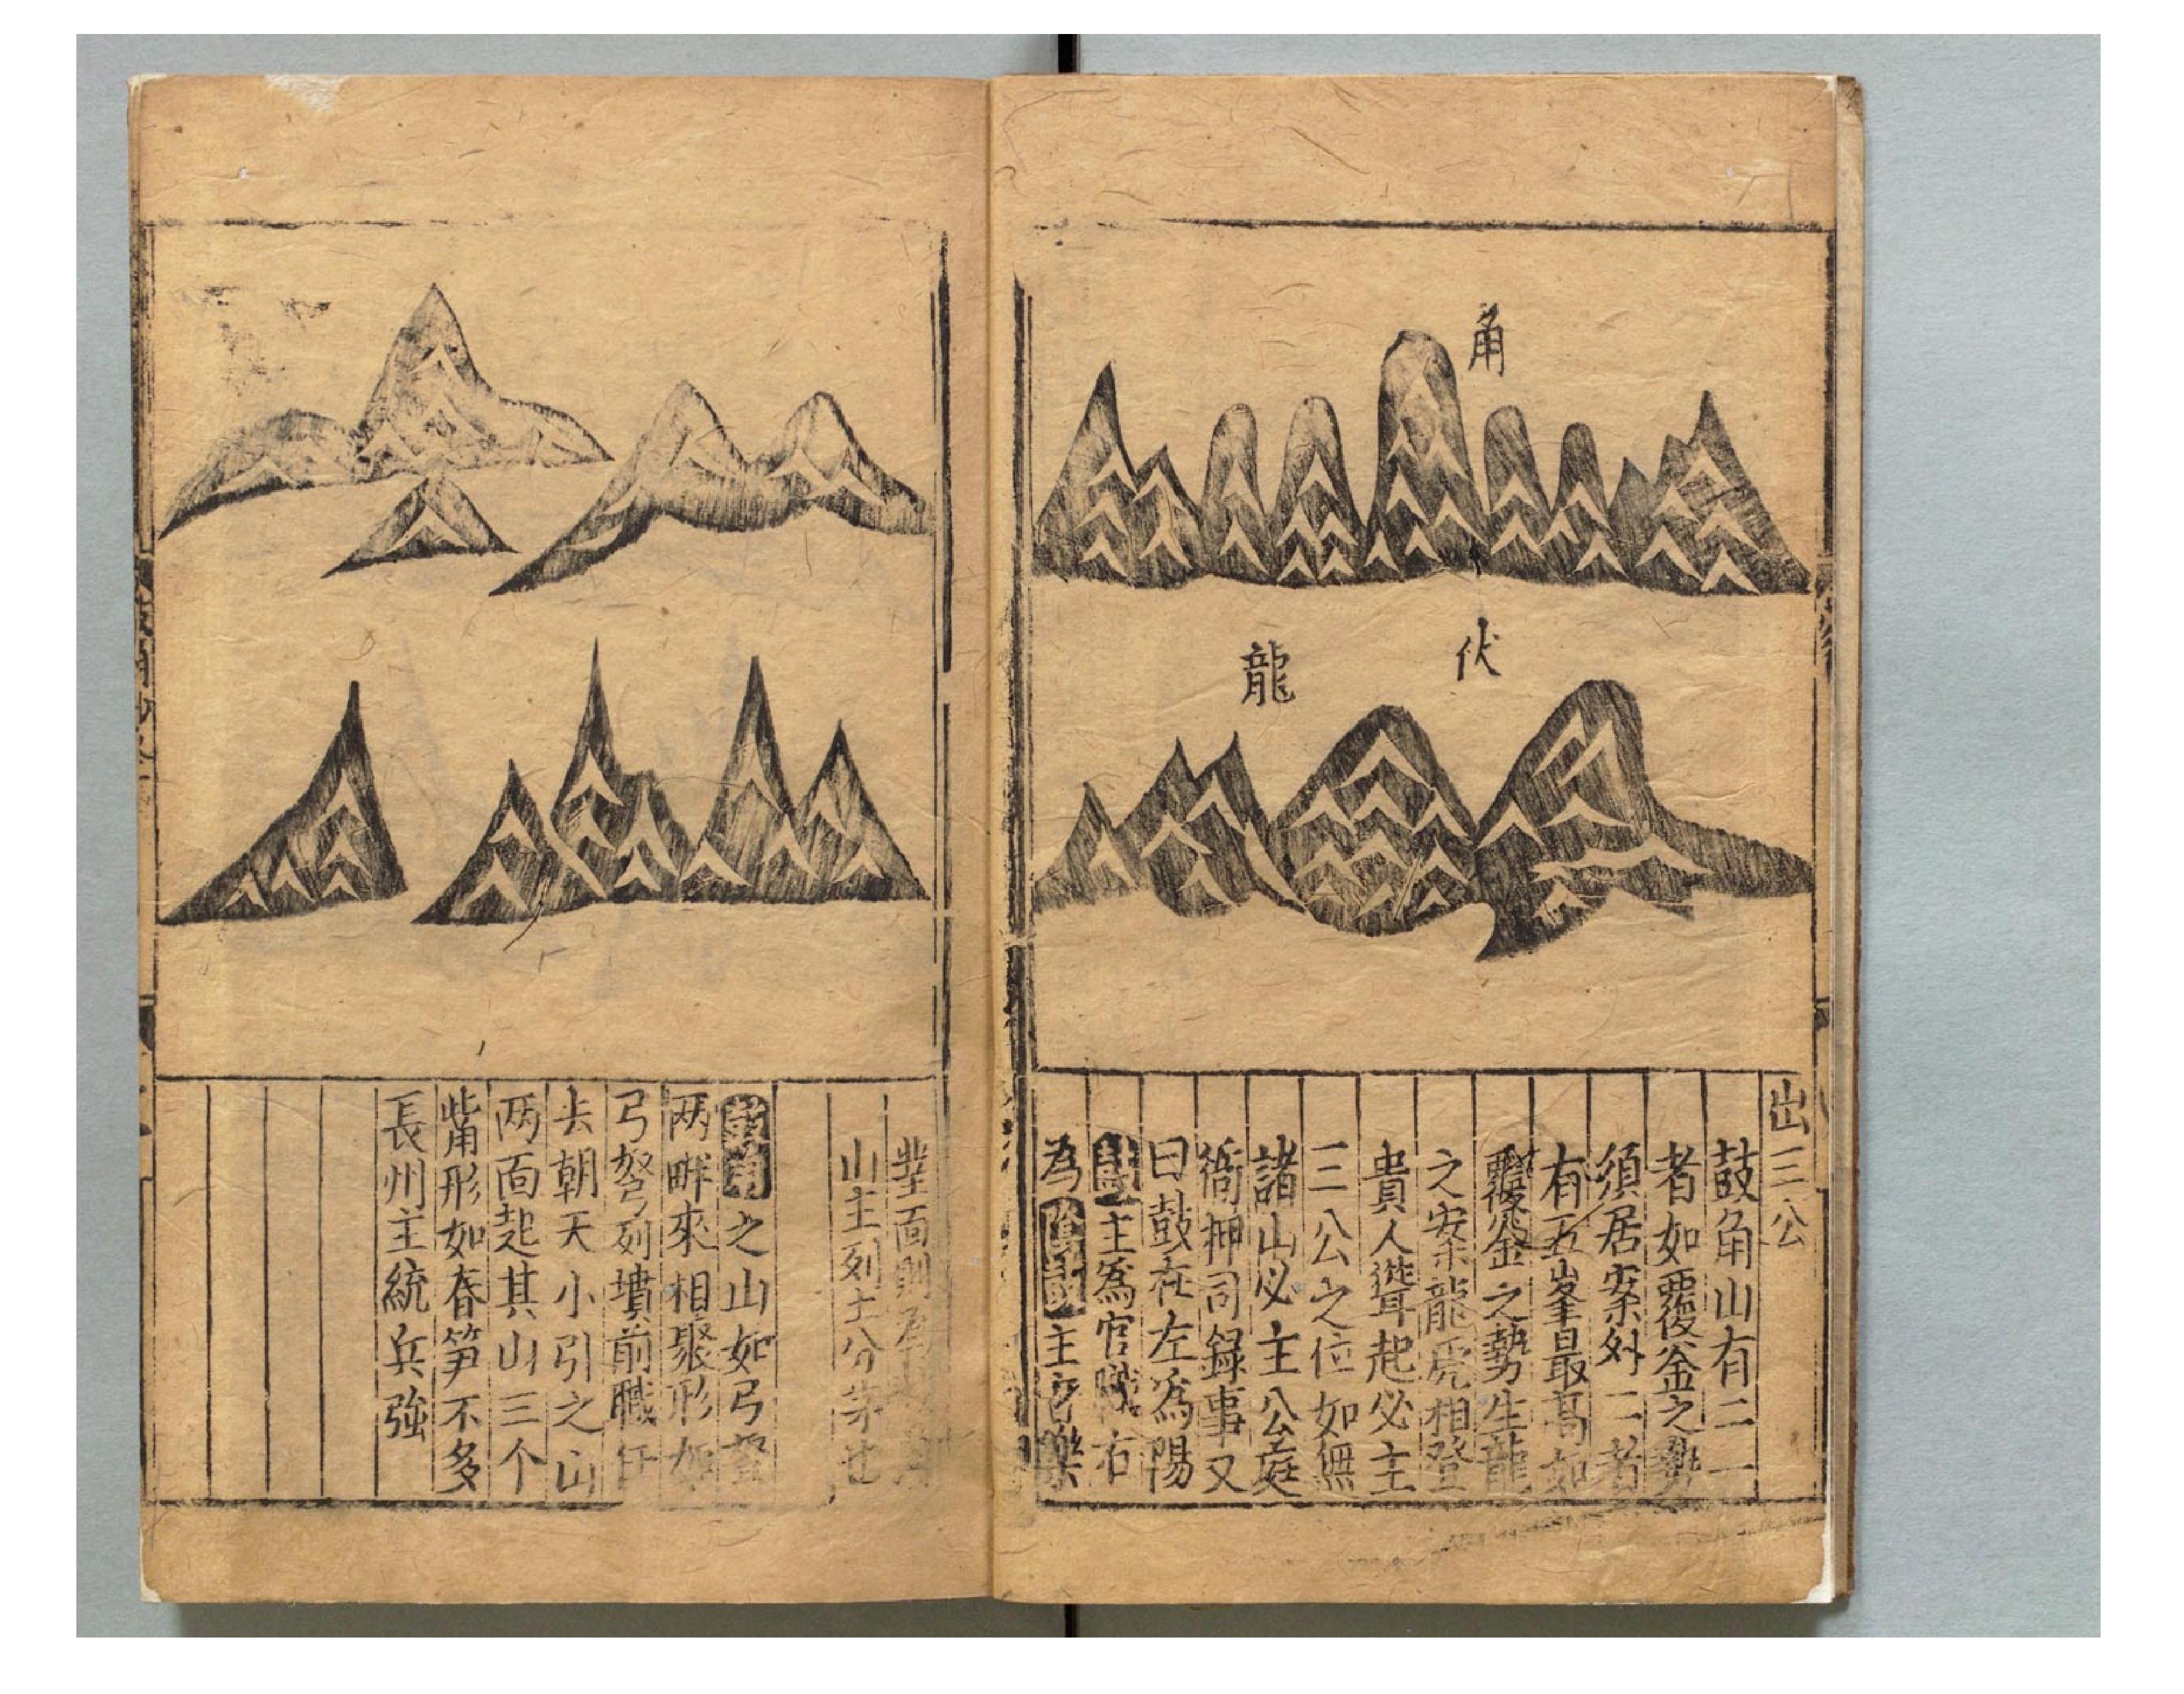 角
伏
龍
出三公
鼓角山有二一
者如覆釜之勢
須居案外二者
有五峯最高如
覆釜之勢生龍
之案龍虎相登
貴人從耳起必主
三公之位如無
諸山必主公庭
衙押司録事又
曰鼓在左爲陽
主爲官職右
為
主音樂
山主列土分茅也
之山如弓
两畔來相聚形如
弓弩列墳前職任
去朝天小引之山
两面起其山三个
觜形如春笋不多
長州主統兵強